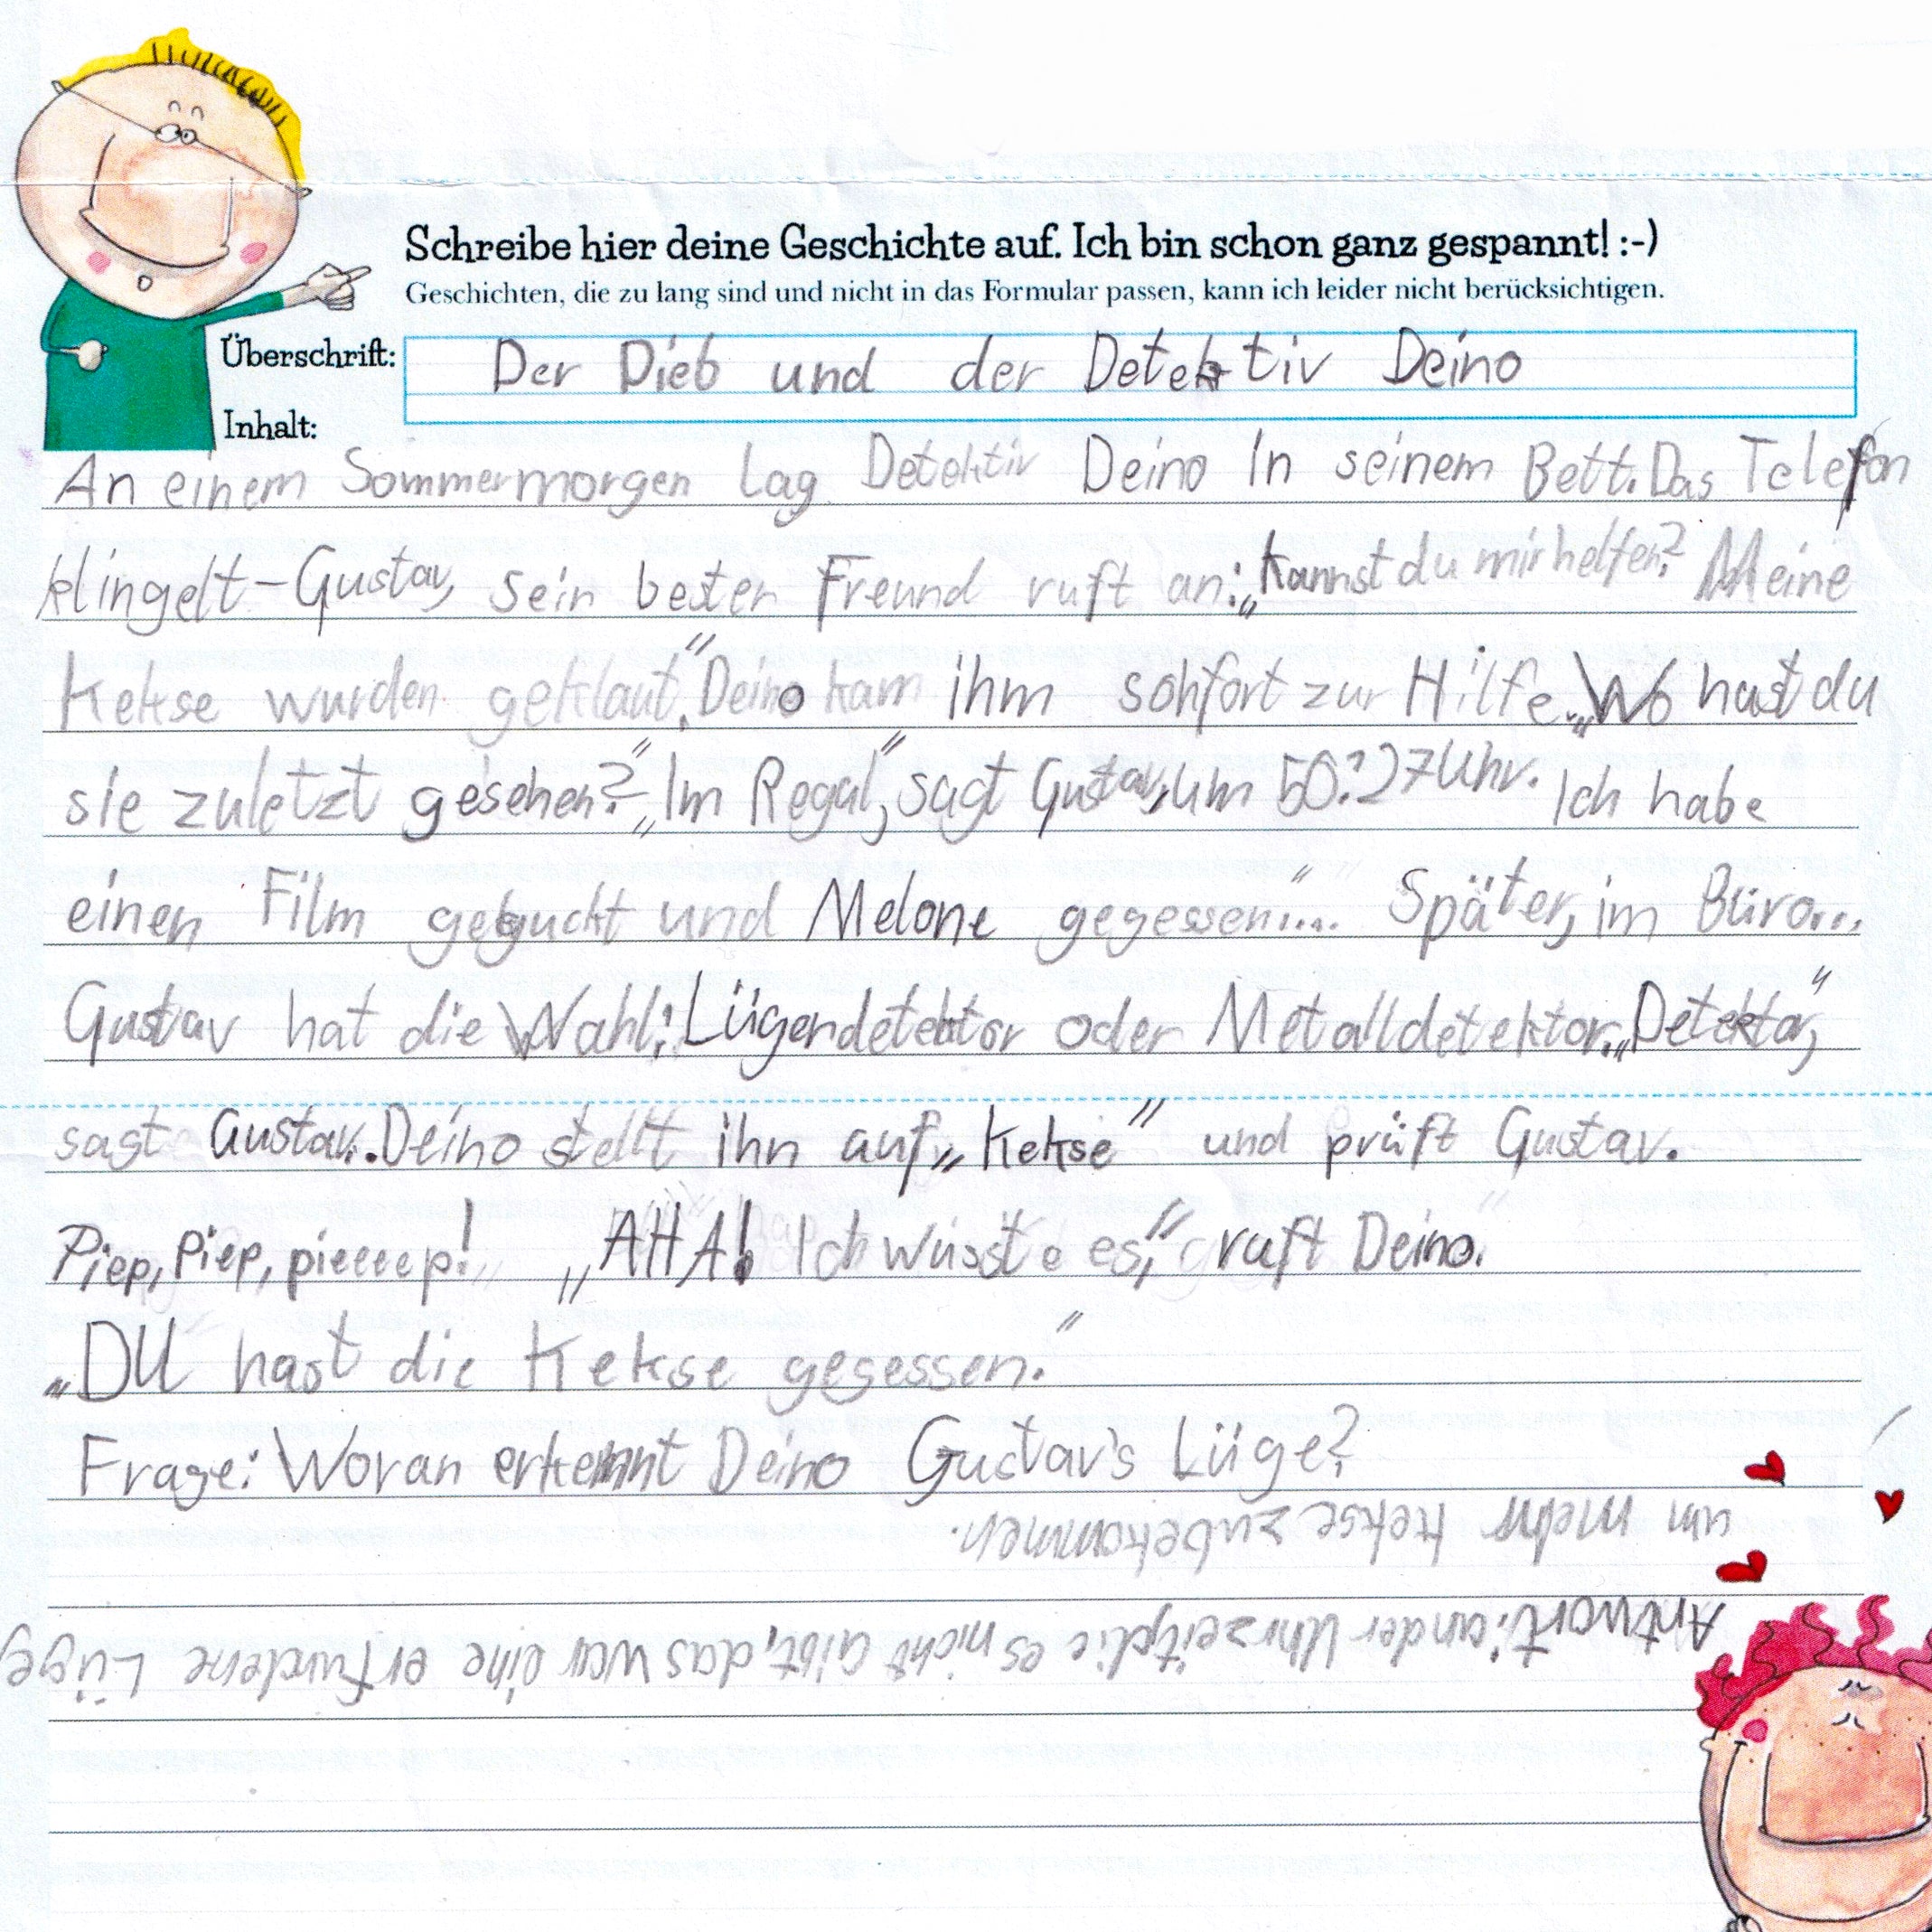 Schreibe hier deine Geschichte auf. Ich bin schon ganz gespannt! :-)
Geschichten, die zu lang sind und nicht in das Formular passen, kann ich leider nicht berücksichtigen.
Überschrift: Der Dieb und der Detektiv Deino
Inhalt:
An einem Sommermorgen lag Detektiv Deino in seinem Bett. Das Telefon
klingelt-Gustav, sein bester Freund ruft an: „Kannst du mir helfen? Meine
Kekse wurden geklaut." Deino kam ihm sohfort zur Hilfe. „Wo hast du
sie zuletzt gesehen?" „Im Regal", sagt Gustav, um 50:27 Uhr. Ich habe
einen Film geguckt und Melone gegessen...." Später, im Büro...
Gustav hat die Wahl: Lügendetektor oder Metalldetektor. „Detektor",
sagt Gustav. Deino stellt ihn auf „Kekse" und prüft Gustav.
Piep, Piep, pieeeep! „AHA! Ich wusste es," ruft Deino.
„DU hast die Kekse gegessen."
Frage: Woran erkennt Deino Gustav's Lüge?
Antwort: an der Uhrzeit, die es nicht gibt, das war eine erfundene Lüge
um mehr Kekse zubekommen.